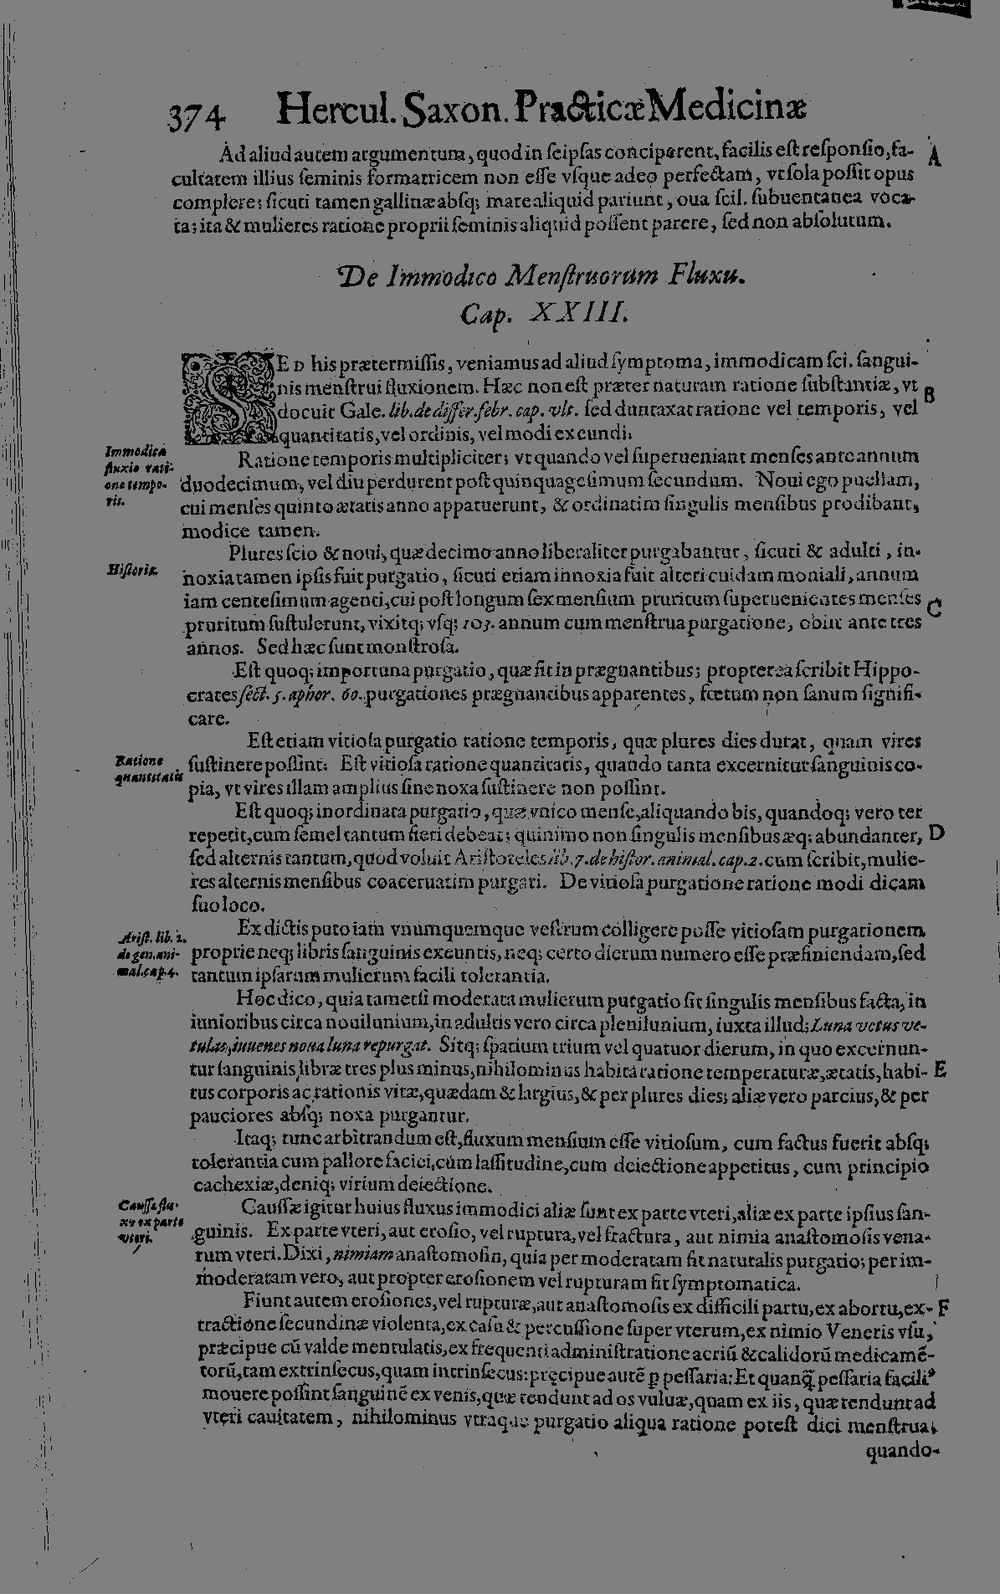 374 Hercul. Saxon. Practicæ Medicinæ
Ad aliud autem argumentum, quod in ſeipſas conciperent, facilis eſt reſponſio, fa-
cultatem illius ſeminis formatricem non eſſe vſque adeo perfectam, vt ſola poſſit opus
complere; ſicuti tamen gallinæ abſq; mare aliquid pariunt, oua ſcil. ſubuentanea voca-
ta; ita & mulieres ratione proprii ſeminis aliquid poſſent parere, ſed non abſolutum.
A
De Immodico Menſtruorum Fluxu.
Cap. XXIII.
SED his prætermiſſis, veniamus ad aliud ſymptoma, immodicam ſci. ſangui-
nis menſtrui fluxionem. Hæc non eſt præter naturam ratione ſubſtantiæ, vt
B
docuit Gale. lib. de differ. febr. cap. vlt. ſed duntaxat ratione vel temporis, vel
quantitatis, vel ordinis, vel modi excundi.
Immodica
fluxio rati-
one tempo-
ris.
Ratione temporis multipliciter; vt quando vel ſuperueniant menſes ante annum
duodecimum, vel diu perdurent poſt quinquageſimum ſecundum. Noui ego puellam,
cui menſes quinto ætatis anno apparuerunt, & ordinatim ſingulis menſibus prodibant,
modice tamen.
Hiſtoriæ.
Plures ſcio & noui, quæ decimo anno liberaliter purgabantur, ſicuti & adulti, in-
noxia tamen ipſis fuit purgatio, ſicuti etiam innoxia fuit alteri cuidam moniali, annum
iam centeſimum agenti, cui poſt longum ſex menſium pruritum ſuperuenientes menſes
C
pruritum ſuſtulerunt, vixitq; vſq; 103. annum cum menſtrua purgatione, obiit ante tres
annos. Sed hæc ſunt monſtroſa.
Eſt quoq; importuna purgatio, quæ fit in prægnantibus; propterea ſcribit Hippo-
crates ſect. 5. aphor. 60. purgationes prægnantibus apparentes, fœtum non ſanum ſignifi-
care.
Eſt etiam vitioſa purgatio ratione temporis, quæ plures dies durat, quam vires
Ratione
quantitatis
ſuſtinere poſſint: Eſt vitioſa ratione quantitatis, quando tanta excernitur ſanguinis co-
pia, vt vires illam amplius ſine noxa ſuſtinere non poſſint.
Eſt quoq; inordinata purgatio, quæ vnico menſe, aliquando bis, quandoq; vero ter
repetit, cum ſemel tantum fieri debeat; quinimo non ſingulis menſibus æq; abundanter,
D
ſed alternis tantum, quod voluit Ariſtoteles lib. 7. de hiſtor. animal. cap. 2. cum ſcribit, mulie-
res alternis menſibus coaceruatim purgari. De vitioſa purgatione ratione modi dicam
ſuo loco.
Ariſt. lib. 2.
de gen. ani-
mal. cap. 4.
Ex dictis puto iam vnumquemque veſtrum colligere poſſe vitioſam purgationem
proprie neq; libris ſanguinis exeuntis, neq; certo dierum numero eſſe præfiniendam, ſed
tantum ipſarum mulierum facili tolerantia.
Hoc dico, quia tametſi moderata mulierum purgatio ſit ſingulis menſibus facta, in
iunioribus circa nouilunium, in adultis vero circa plenilunium, iuxta illud; Luna vetus ve-
tulas, iuuenes noua luna repurgat. Sitq; ſpatium trium vel quatuor dierum, in quo excernun-
tur ſanguinis libræ tres plus minus, nihilominus habita ratione temperaturæ, ætatis, habi-
E
tus corporis ac rationis vitæ, quædam & largius, & per plures dies; aliæ vero parcius, & per
pauciores abſq; noxa purgantur.
Itaq; tunc arbitrandum eſt, fluxum menſium eſſe vitioſum, cum factus fuerit abſq;
tolerantia cum pallore faciei, cum laſſitudine, cum deiectione appetitus, cum principio
cachexiæ, deniq; virium deiectione.
Cauſſæ flu-
xus ex parte
vteri.
Cauſſæ igitur huius fluxus immodici aliæ ſunt ex parte vteri, aliæ ex parte ipſius ſan-
guinis. Ex parte vteri, aut eroſio, vel ruptura, vel fractura, aut nimia anaſtomoſis vena-
rum vteri. Dixi, nimiam anaſtomoſin, quia per moderatam fit naturalis purgatio; per im-
moderatam vero, aut propter eroſionem vel rupturam fit ſymptomatica.
Fiunt autem eroſiones, vel rupturæ, aut anaſtomoſis ex difficili partu, ex abortu, ex-
F
tractione ſecundinæ violenta, ex caſu & percuſſione ſuper vterum, ex nimio Veneris vſu,
præcipue cū valde mentulatis, ex frequenti adminiſtratione acriū & calidorū medicamē-
torū, tam extrinſecus, quam intrinſecus: pręcipue autē ꝑ peſſaria: Et quanq̃ peſſaria facili⁹
mouere poſſint ſanguinē ex venis, quæ tendunt ad os vuluæ, quam ex iis, quæ tendunt ad
vteri cauitatem, nihilominus vtraque purgatio aliqua ratione poteſt dici menſtrua,
quando-